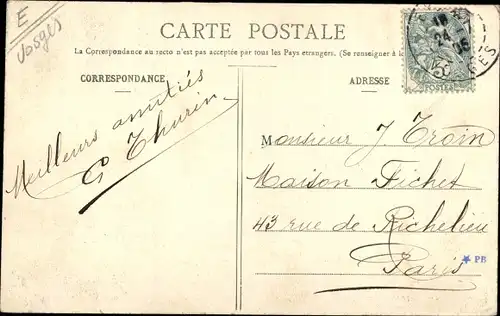 E
Vosges
CARTE POSTALE
La Correspondance au recto n'est pas acceptée par tous les Pays étrangers. (Se renseigner à
CORRESPONDANCE
ADRESSE
18
24
05
5c
POSTES
Meilleurs amitiés
G Thurin
Monsieur J. Troin
Maison Fichet
43 rue de Richelieu
Paris
PB